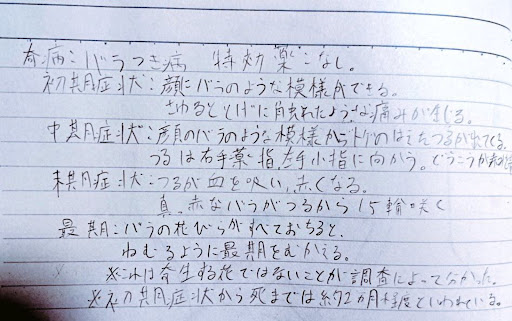 奇病:バラつき病 特効薬:なし。
初期症状:顔にバラのような模様ができる。
さわるととげに触れたような痛みが生じる。
中期症状:顔のバラのような模様からトゲのはえたつるが出てくる。
つるは右手薬指、左手小指に向かう。どうこうが赤
末期症状:つるが血を吸い、赤くなる。
真っ赤なバラがつるから15輪咲く
最期:バラの花びらがすべておちると、
ねむるように最期をむかえる。
※これは寄生する花ではないことが調査によって分かった。
※初期症状から死までは約2カ月程度といわれている。